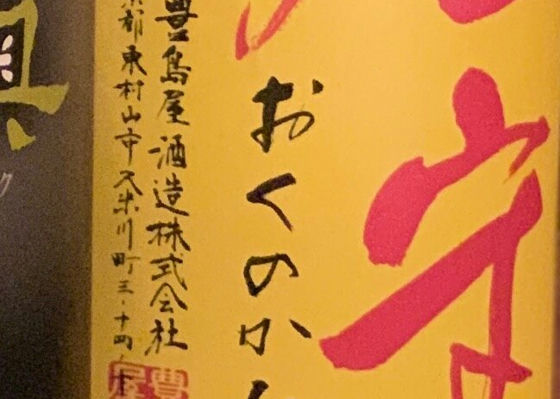 守
おくのか
豊島屋酒造株式会社
京都東村山市久米川町三・十四・十